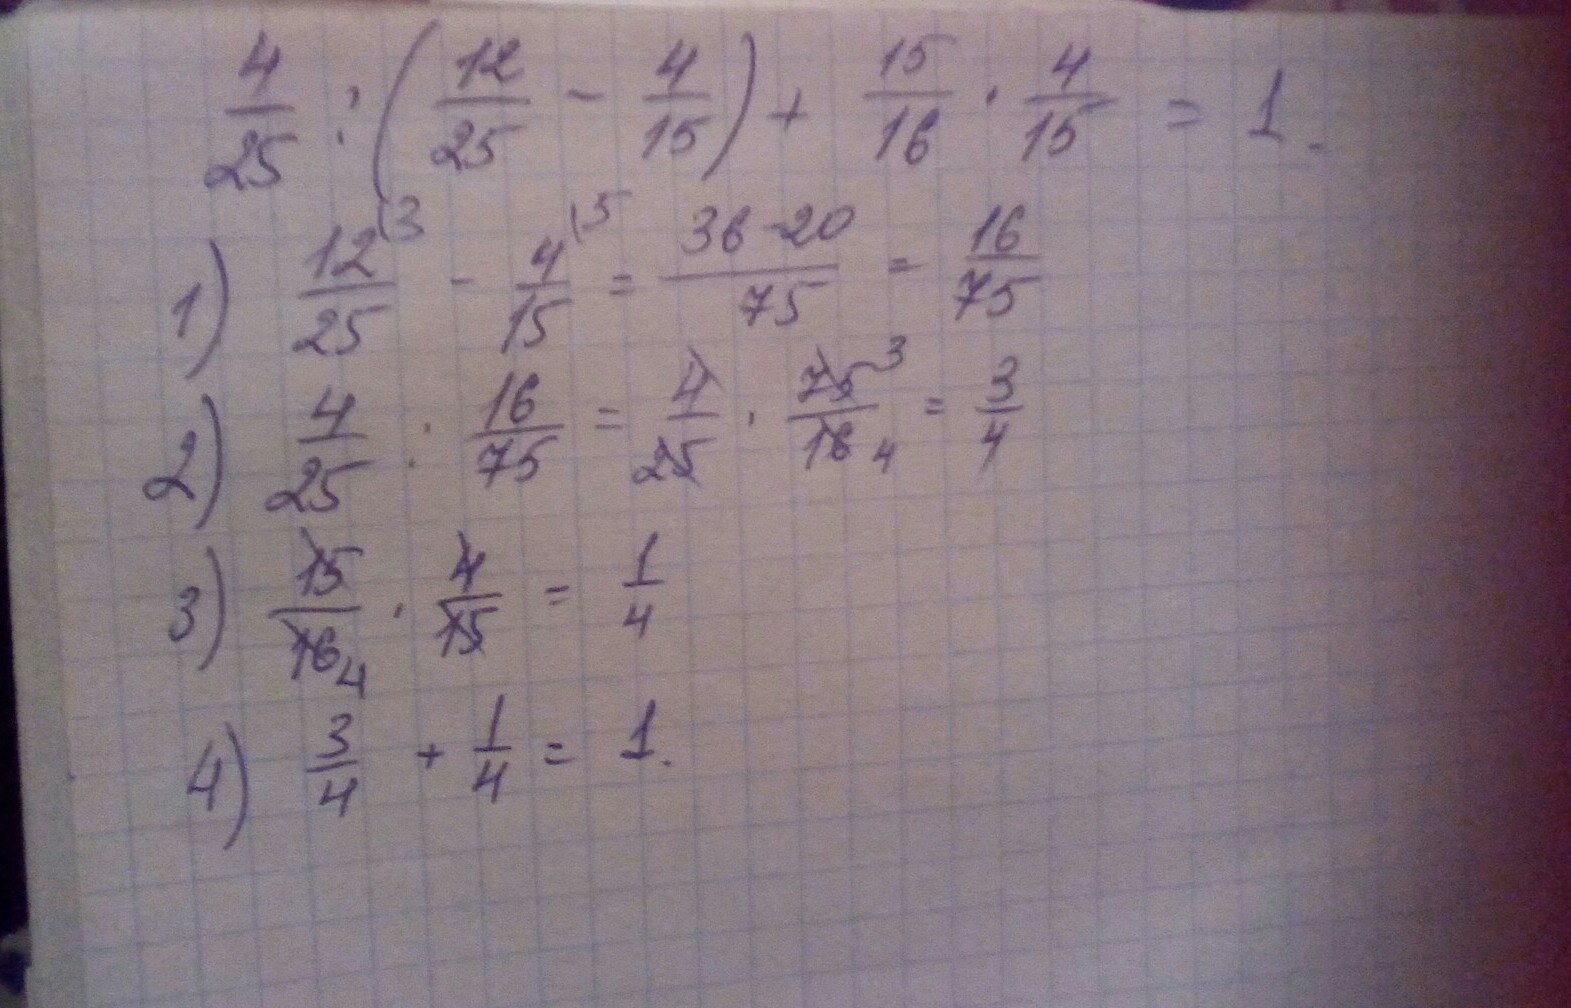 4/25 : (12/25 - 4/15) + 15/16 · 4/15 = 1.
1) 12/25 \3 - 4/15 \5 = 36-20/75 = 16/75
2) 4/25 : 16/75 = 4/25 · 75/16 3 4 = 3/4
3) 15/16 4 · 4/15 = 1/4
4) 3/4 + 1/4 = 1.